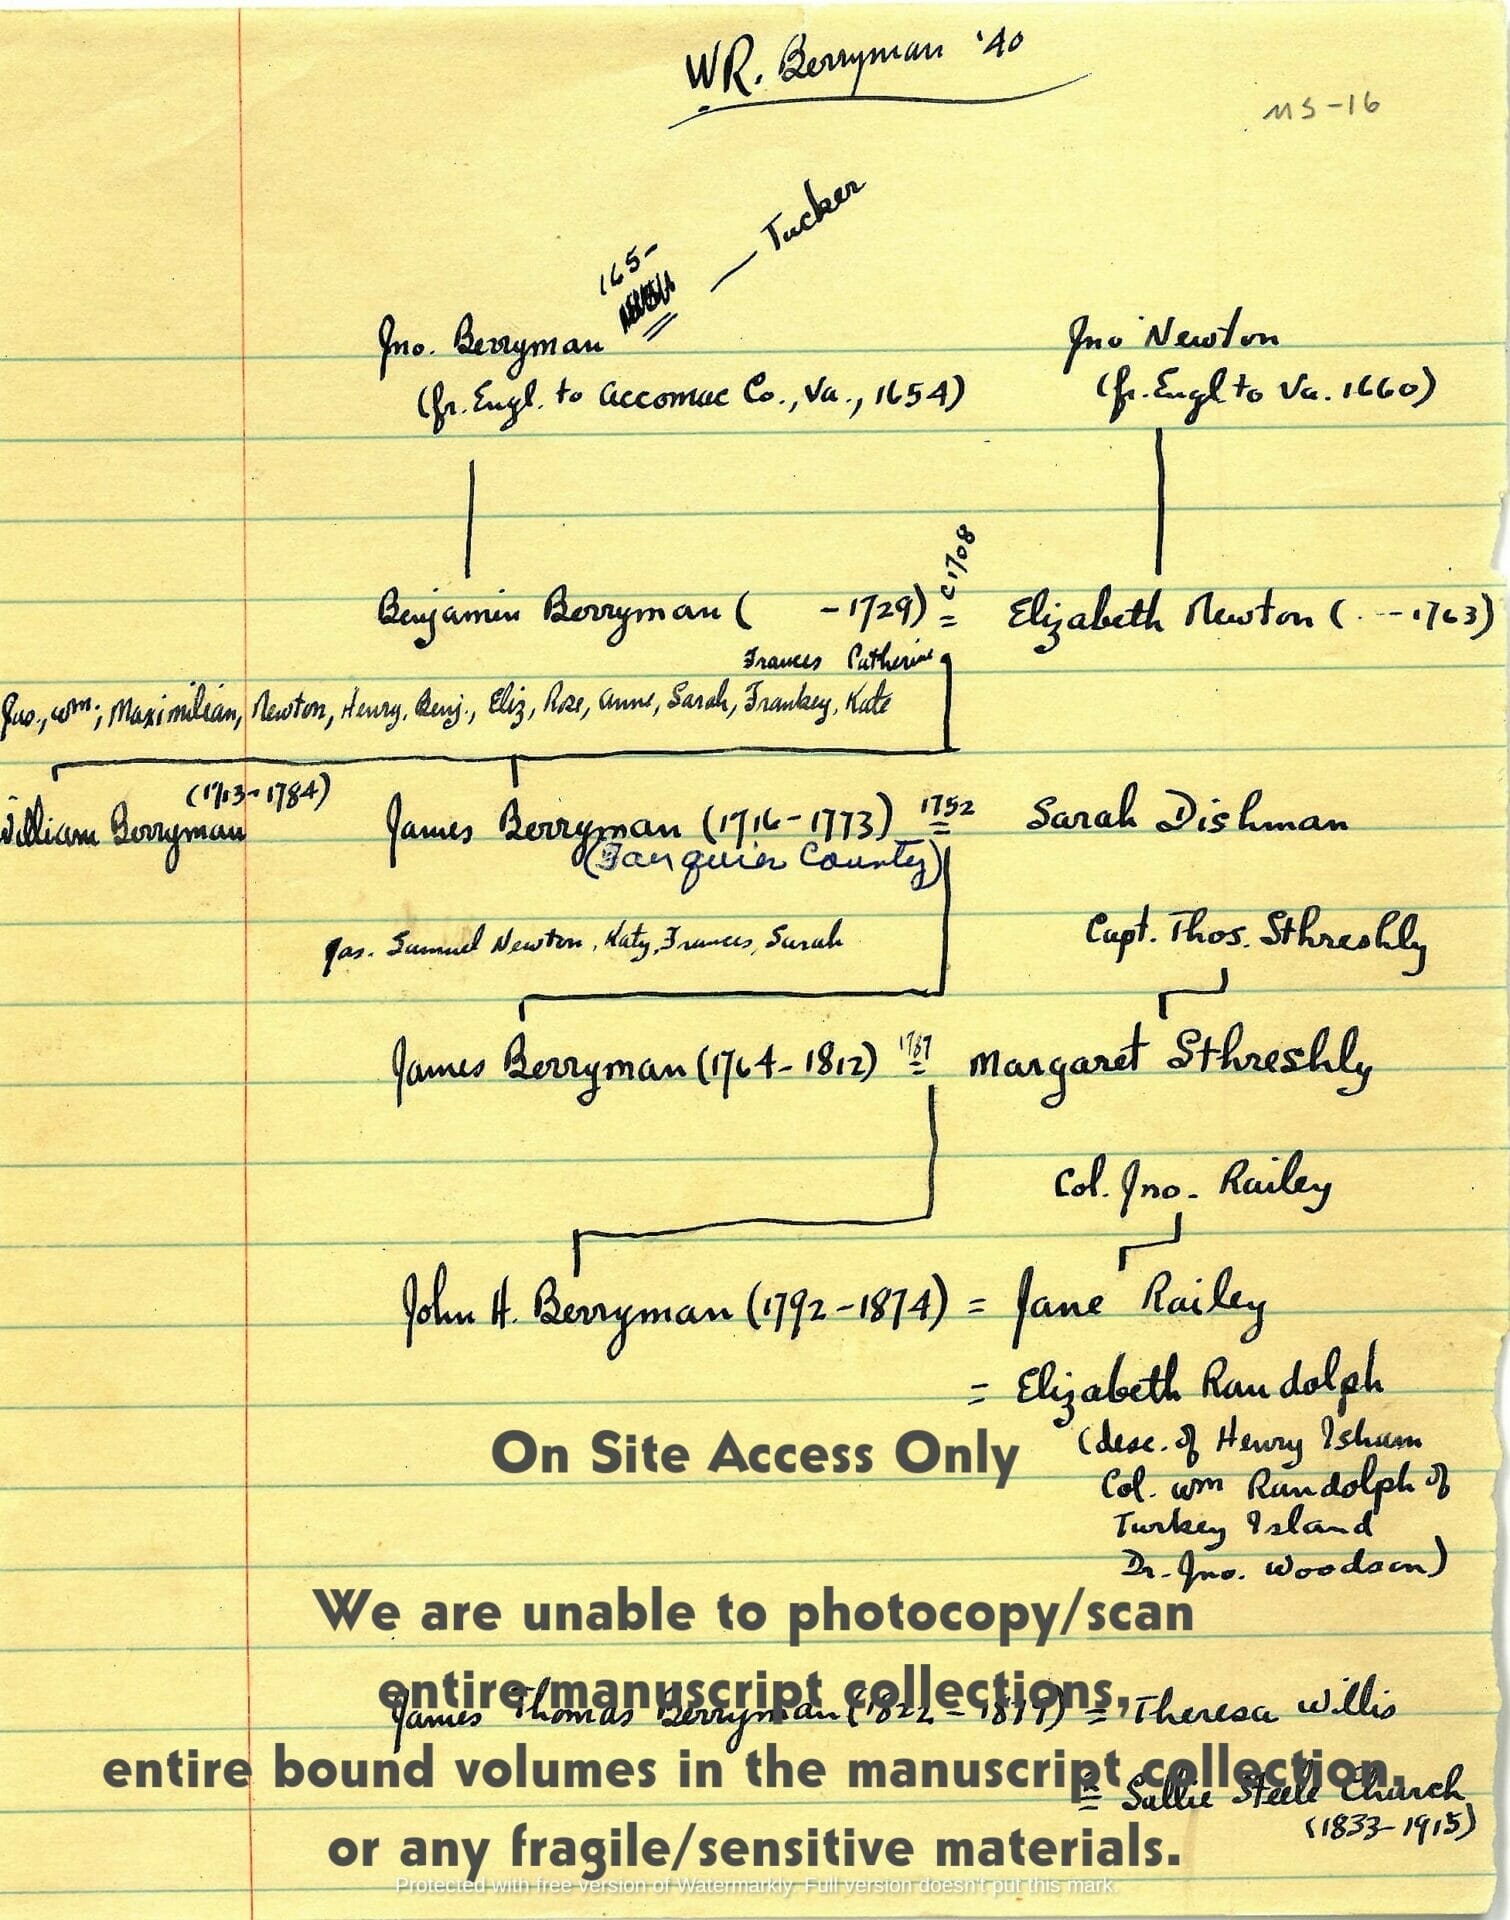 WR. Berryman '40
MS-16
165-
— Tucker
Jno. Berryman =
Jno Newton
(fr. Engl. to Accomac Co., Va., 1654)
(fr. Engl to Va. 1660)
c 1708
Benjamin Berryman ( -1729) = Elizabeth Newton ( . --1763)
Frances Catherine
Jas., Wm; Maximilian, Newton, Henry, Benj., Eliz, Rose, Anne, Sarah, Frankey, Kate
(1713-1784)
William Berryman
James Berryman (1716-1773) 1752 = Sarah Dishman
(Fauquier County)
Capt. Thos. Sthreshly
Jas. Samuel Newton, Katy, Frances, Sarah
James Berryman (1764-1812) 1787 = Margaret Sthreshly
Col. Jno. Railey
John H. Berryman (1792-1874) = Jane Railey
= Elizabeth Randolph
(desc. of Henry Isham
Col. Wm Randolph of
Turkey Island
Dr. Jno. Woodson)
On Site Access Only
We are unable to photocopy/scan
entire manuscript collections,
James Thomas Berryman (1822-1879) = Theresa Willis
entire bound volumes in the manuscript collection,
= Sallie Steele Church
(1833-1915)
or any fragile/sensitive materials.
Protected with free version of Watermarkly. Full version doesn't put this mark.